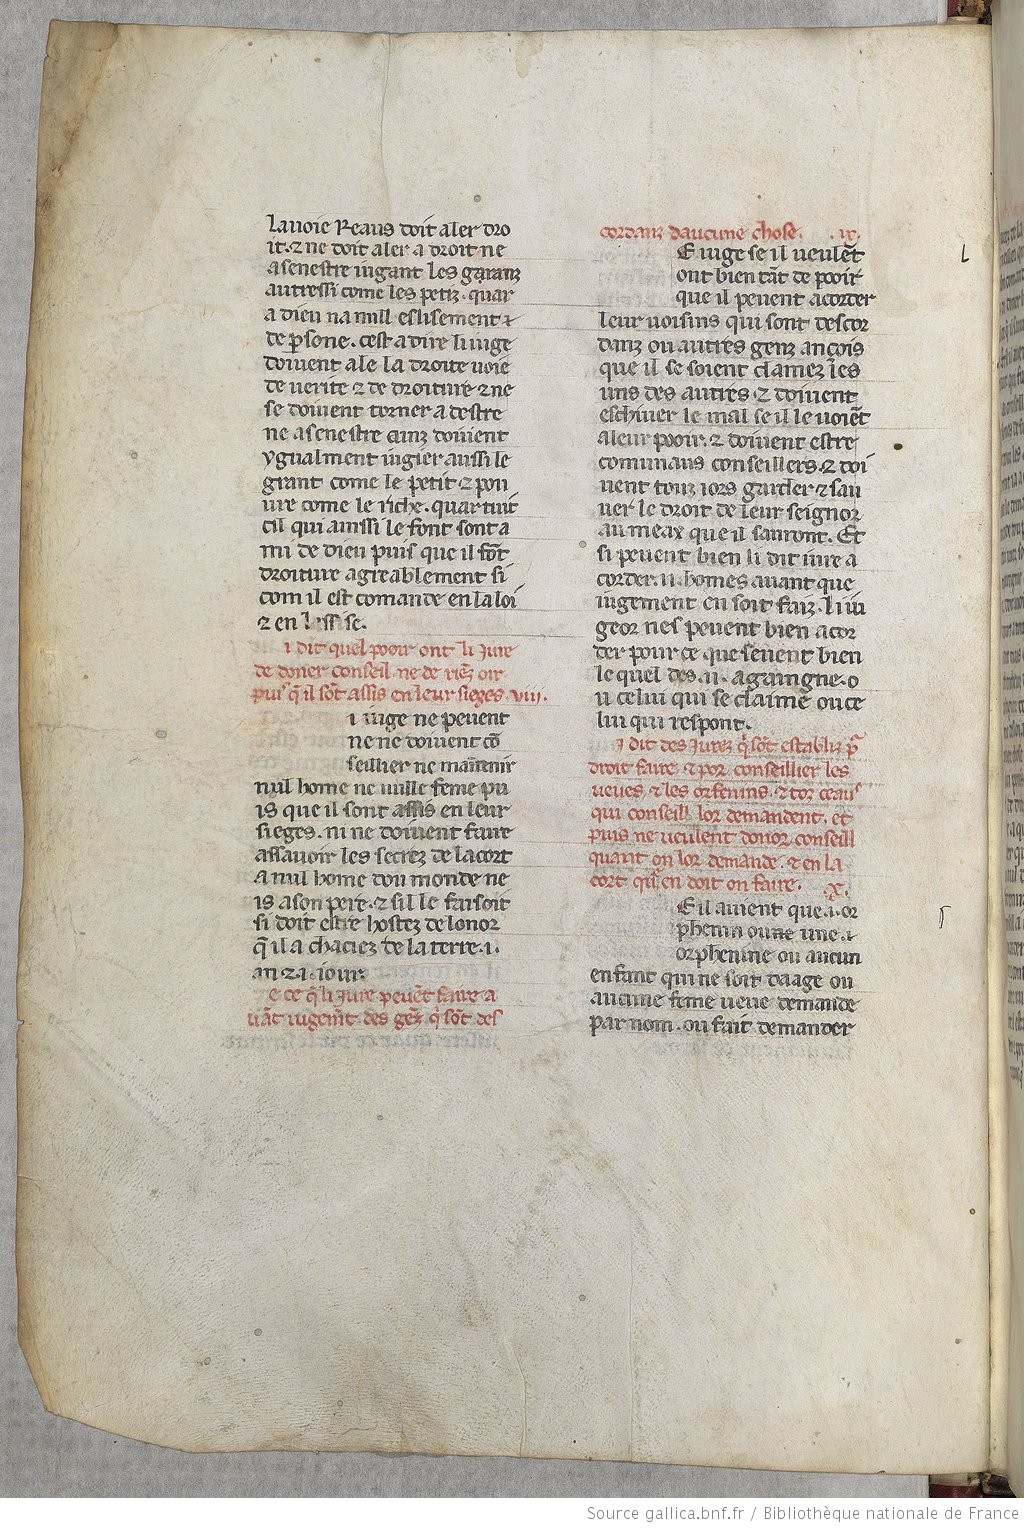 la uoie Reaus doit aler dro
it. ⁊ ne doit aler a droit ne
a senestre iugant les garanz
autressi come les petiz. quar
a dieu na nul I eslisement ⁊
de ꝑsone. cest a dire li iuge
doiuent ale la droite uoie
de uerite ⁊ de droiture ⁊ ne
se doiuent torner a destre
ne a senestre ainz doiuent
ygualment iugier aussi le
grant come le petit ⁊ pou
ure come le riche. quar tuit
cil qui ainssi le font sont a
mi de dieu puis que il fōt
droiture agreablement si
com il est comande en la loi
⁊ en l assise.
i dit quel pooir ont li Jure
de doner conseil ne de riēz oir
puis q̄ il sōt assis en leur sieges. viii.
i iuge ne peuent
ne ne doiuent cō
seillier ne maītenir
nul home ne nulle feme pu
is que il sont assis en leur
sieges. ni ne doiuent faire
assauoir les secrez de la cort
a nul home dou monde ne
is a son pere. ⁊ sil le faisoit
si doit estre hostez de lonor
q̄ il a chaciez de la terre .i.
an ⁊ .i. iour.
e ce q̄ li Jure peuēt faire a
uāt iugem̄t des gēz q̇ sōt des
cordanz daucune chose. .ix.
E iuge se il ueulēt
ont bien tāt de pooir
que il peuent acorder
leur uoisins qui sont descor
danz ou autres genz ançois
que il se soient clamez les
uns des autres. ⁊ doiuent
eschiuer le mal se il le uoiēt
a leur pooir. ⁊ doiuent estre
comunaus conseillers. ⁊ doi
uent touz iors garder ⁊ sau
uer le droit de leur seignor
au meax que il sauront. Et
si peuent bien li dit iure a
corder .ii. homes auant que
iugement en soit faiz. li iu
geor nes peuent bien acor
der pour ce que seuent bien
le quel des .ii. a gaaingne. o
u celui qui se claime ou ce
lui qui respont.
i dit des Jurez q̇ sōt establiz ꝑ
droit faire ⁊ por conseillier les
ueues ⁊ les orfenins. ⁊ toz ceaus
qui conseill lor demandent. et
puis ne ueulent doner conseill
quant on lor demande. ⁊ en la
cort q̄ en doit on faire. .x.
E il auient que .i. or
phenin ou une .i.
orphenine ou aucun
enfant qui ne soit daage ou
aucune feme ueue demande
par nom. ou fait demander